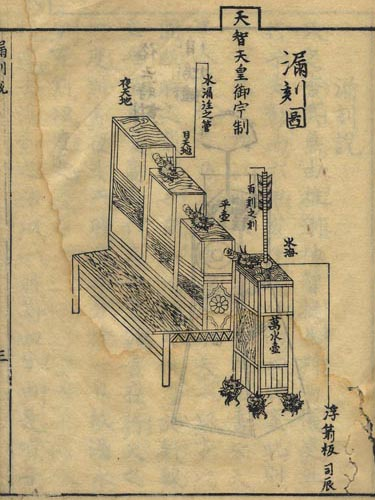 漏刻圖
天智天皇御宇制
水海
浮箭板 司辰
百刻之刻
萬水壺
平壺
日天池
夜天池
漏刻説
三